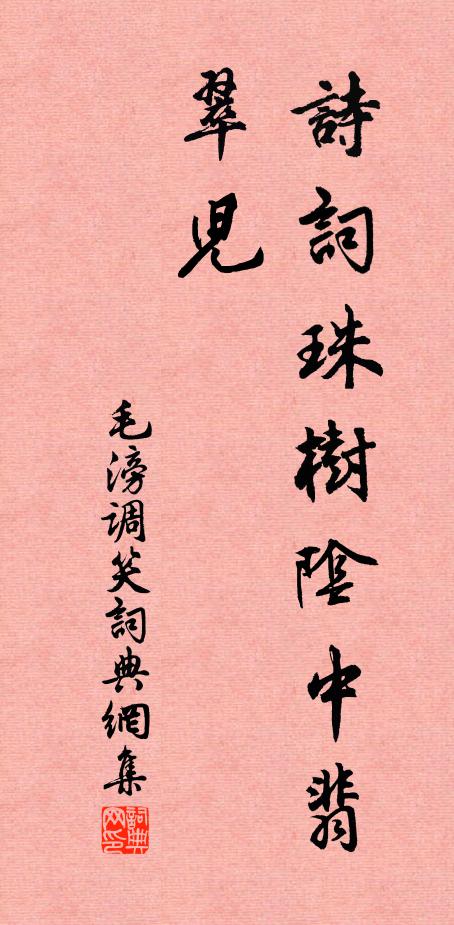 詩詞珠樹陰中翡
翠兒
毛滂調笑詞典網集
詞典网印